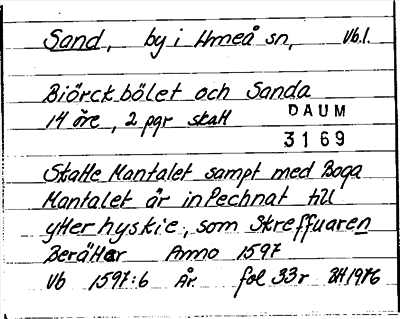 Sand, by i Umeå sn, Vb.l.
Biörckbölet och Sanda
14 öre, 2 pgr skatt
DAUM
3169
Skatte Mantalet sampt med Boga
Mantalet är inPechnat till
ytterhyskie, som Skreffuaren
Berätter Anno 1597
Vb 1597:6 År. fol 33r BH 1976